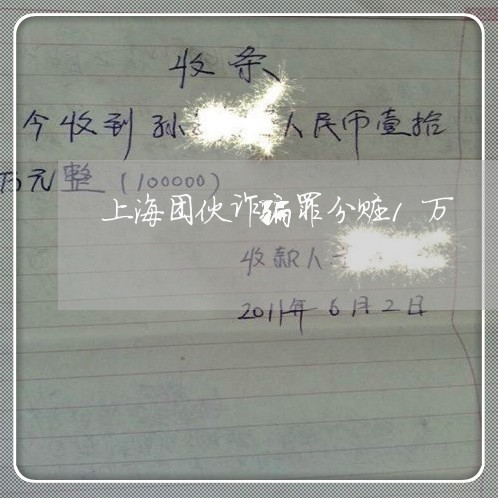 收条
今收到孙 人民币壹拾
万元整（100000）
上海团伙诈骗罪分赃1万
收款人
2011年6月2日